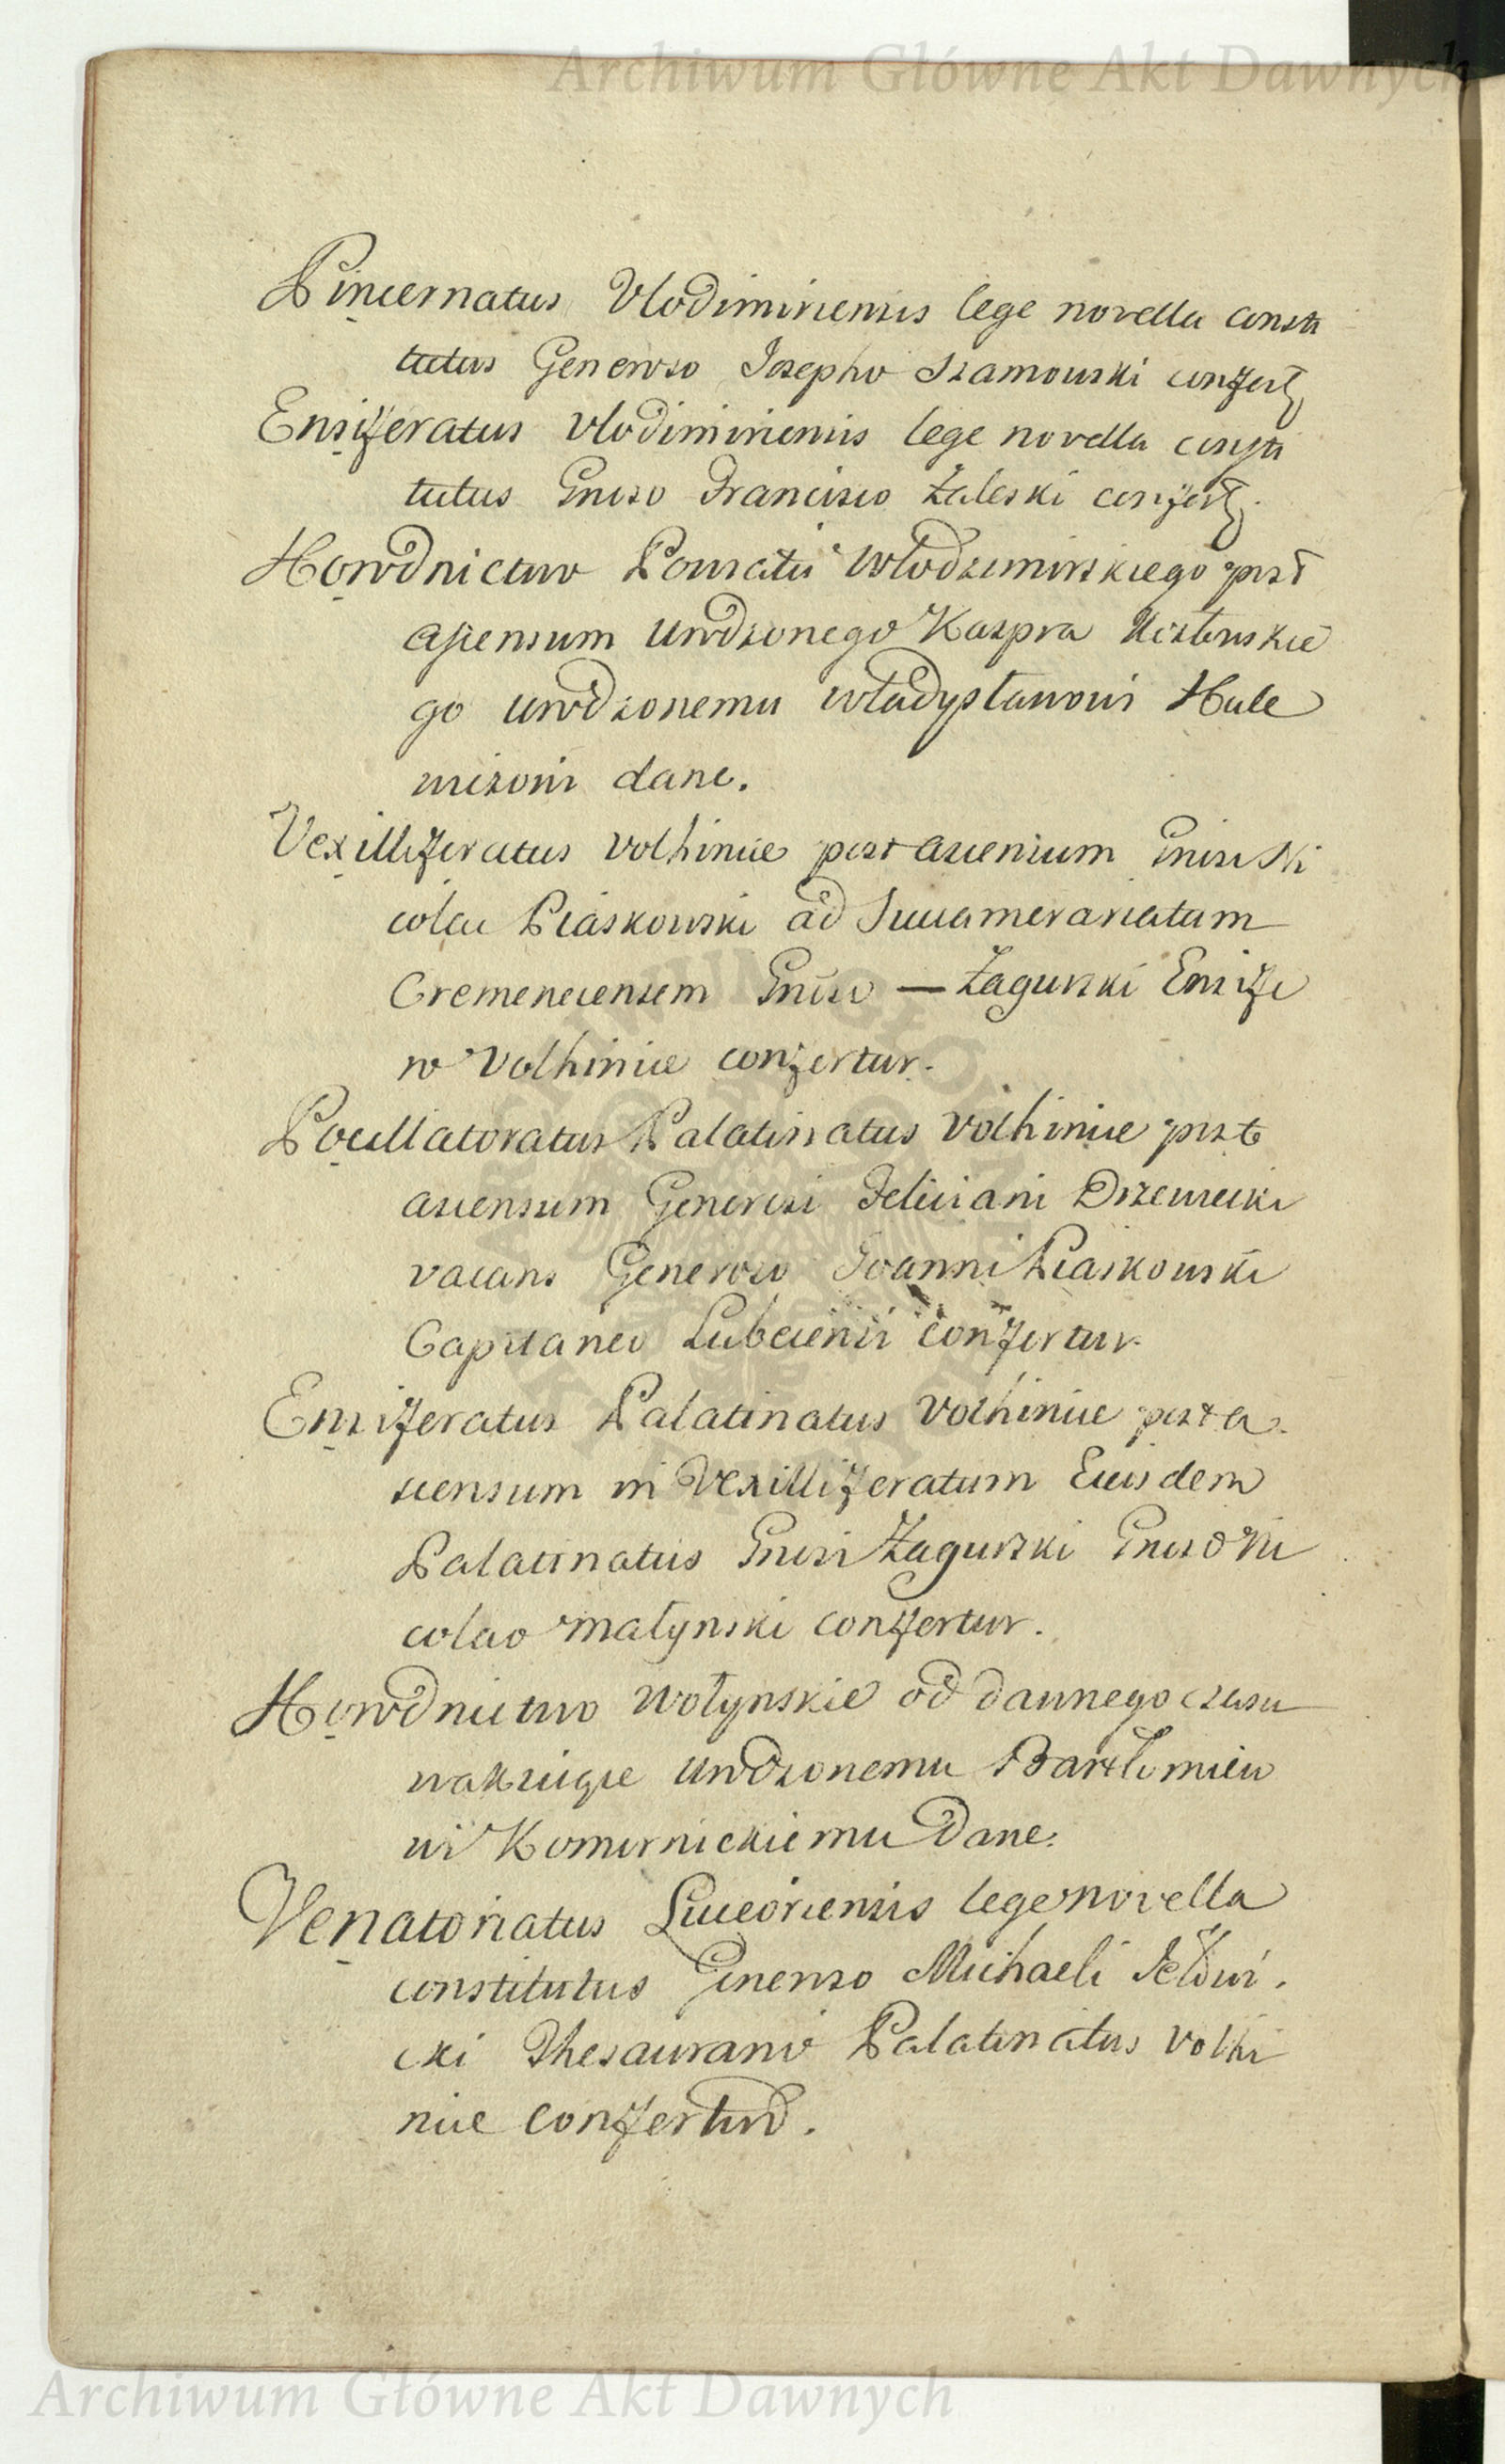 Archiwum Główne Akt Dawnych
Pincernatus Vlodimiriensis lege novella consti
tutus Generoso Josepho Szamowski confertur
Ensiferatus Vlodimiriensis lege novella consti
tutus Gnoso Francisco Zaleski confertur.
Horodnictwo Powiatu Włodzimirskiego post
assensum Urodzonego Kaspra
go Urodzonemu Władysławowi Hule
wiczowi dane.
Vexilliferatus Volhiniæ post ascensum Gnosi Ni
colai Piaskowski ad Succamerariatum
Cremenecensem Gnoso — Zagurski Ensife
ro Volhiniæ confertur.
Pocillatoratus Palatinatus Volhiniæ post
ascensum Generosi Feliciani Drzewiecki
vacans Generoso Joanni Piaskowski
Capitaneo confertur.
Ensiferatus Palatinatus Volhiniæ post a
scensum in Vexilliferatum Eiusdem
Palatinatus Gnosi Zagurski Gnoso Ni
colao Małynski confertur.
Horodnictwo Wołynskie od dawnego czasu
wakuiące Urodzonemu Bartłomieio
wi Komornickiemu Dane.
Venatoriatus Luceoriensis lege novella
constitutus Generoso Michaeli
cki Thesaurario Palatinatus Volhi
niæ confertur.
Archiwum Główne Akt Dawnych